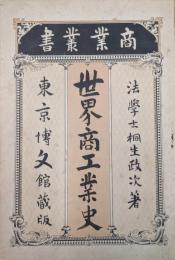 商業叢書
法學士桐生政次著
世界商工業史
東京博文館蔵版